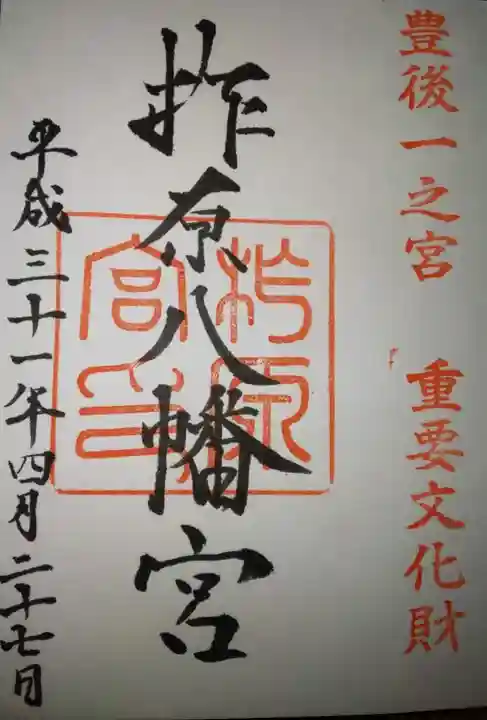 豊後一之宮 重要文化財
柞原八幡宮
柞原
宮印
平成三十一年四月二十七日